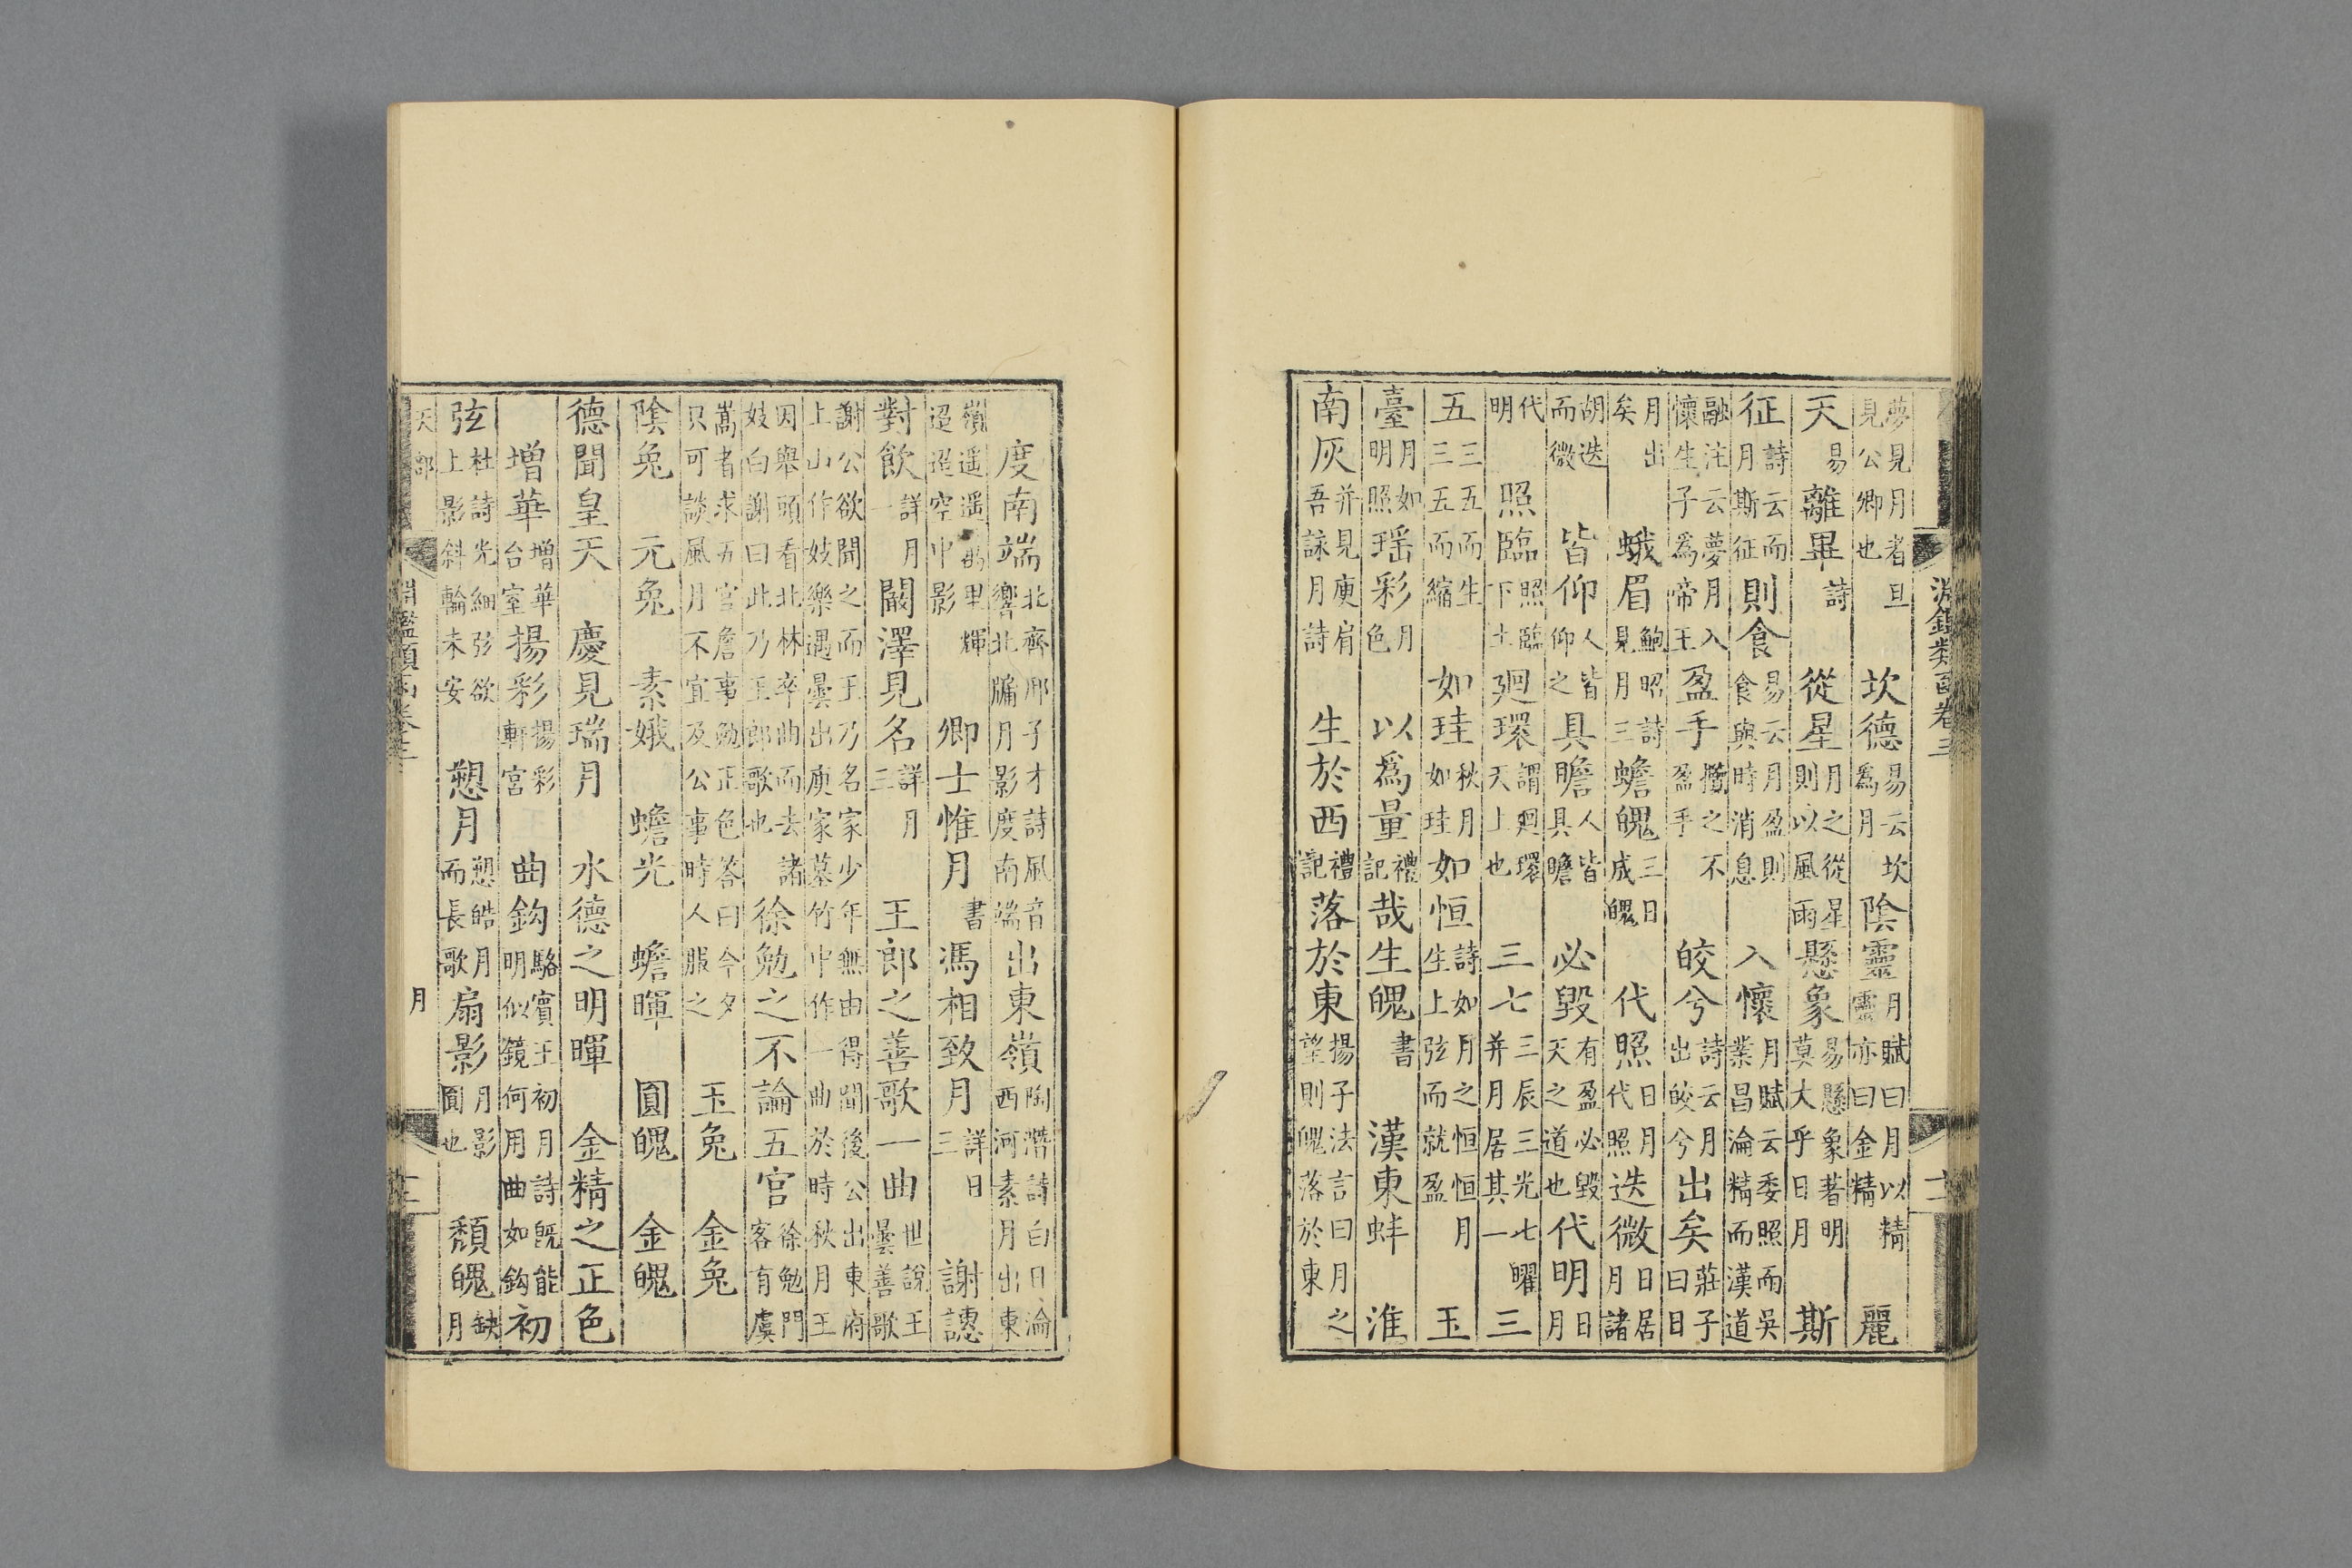 淵鑑類函卷三
夢見月者旦見公卿也 坎德易云坎爲月 陰靈月賦曰月以精靈亦曰金精 麗
天易 離畢詩 從星月之從星則以風雨 懸象易懸象著明莫大乎日月 斯
征詩云而月斯征 則食易云月盈則食與時消息 入懷月賦云委照而吳業昌淪精而漢道
融注云夢月入懷生子爲帝王 盈手攬之不盈手 皎兮詩云月出皎兮 出矣莊子曰日
月出矣 蛾眉鮑昭詩見月三 蟾魄三日成魄 代照日月代照 迭微日居月諸
胡迭而微 皆仰人皆仰之 具瞻人皆具瞻 必毀有盈必毀天之道也 代明日月
代明 照臨照臨下土 廻環謂廻環天上也 三七三辰三光七曜并月居其一 三
五三五而生三五而縮 如珪秋月如珪 如恒詩如月之恒恒月生上弦而就盈 玉
臺月如明照 瑶彩月色 以爲量禮記 哉生魄書 漢東蚌 淮
南灰并見庾肩吾詠月詩 生於西禮記 落於東揚子法言曰月之望則魄落於東
度南端北齊邢子才詩風音響北牖月影度南端 出東嶺陶潛詩白日淪西河素月出東
嶺遥遥萬里輝迢迢空中影 卿士惟月書 馮相致月詳日三 謝譓
對飲詳月一 闞澤見名詳月三 王郎之善歌一曲世說王曇善歌
謝公欲聞之而王乃名家少年無由得聞後公出東府上山作妓樂遇曇出庾家墓竹中作一曲於時秋月王
因舉頭看北林卒曲而去諸妓白謝曰此乃王郎歌也 徐勉之不論五官徐勉門客有虞
嵩者求五官詹事勉正色答曰今夕只可談風月不宜及公事時人服之 玉兔 金兔
陰兔 元兔 素娥 蟾光 蟾暉 圓魄 金魄
德聞皇天 慶見瑞月 水德之明暉 金精之正色
增華增華台室 揚彩揚彩軒宮 曲鈎駱賓王初月詩既能明似鏡何用曲如鈎 初
弦杜詩光細弦欲上影斜輪未安 愬月愬皓月而長歌 扇影月影圓也 頹魄缺月
天部 月
淵鑑類函卷三